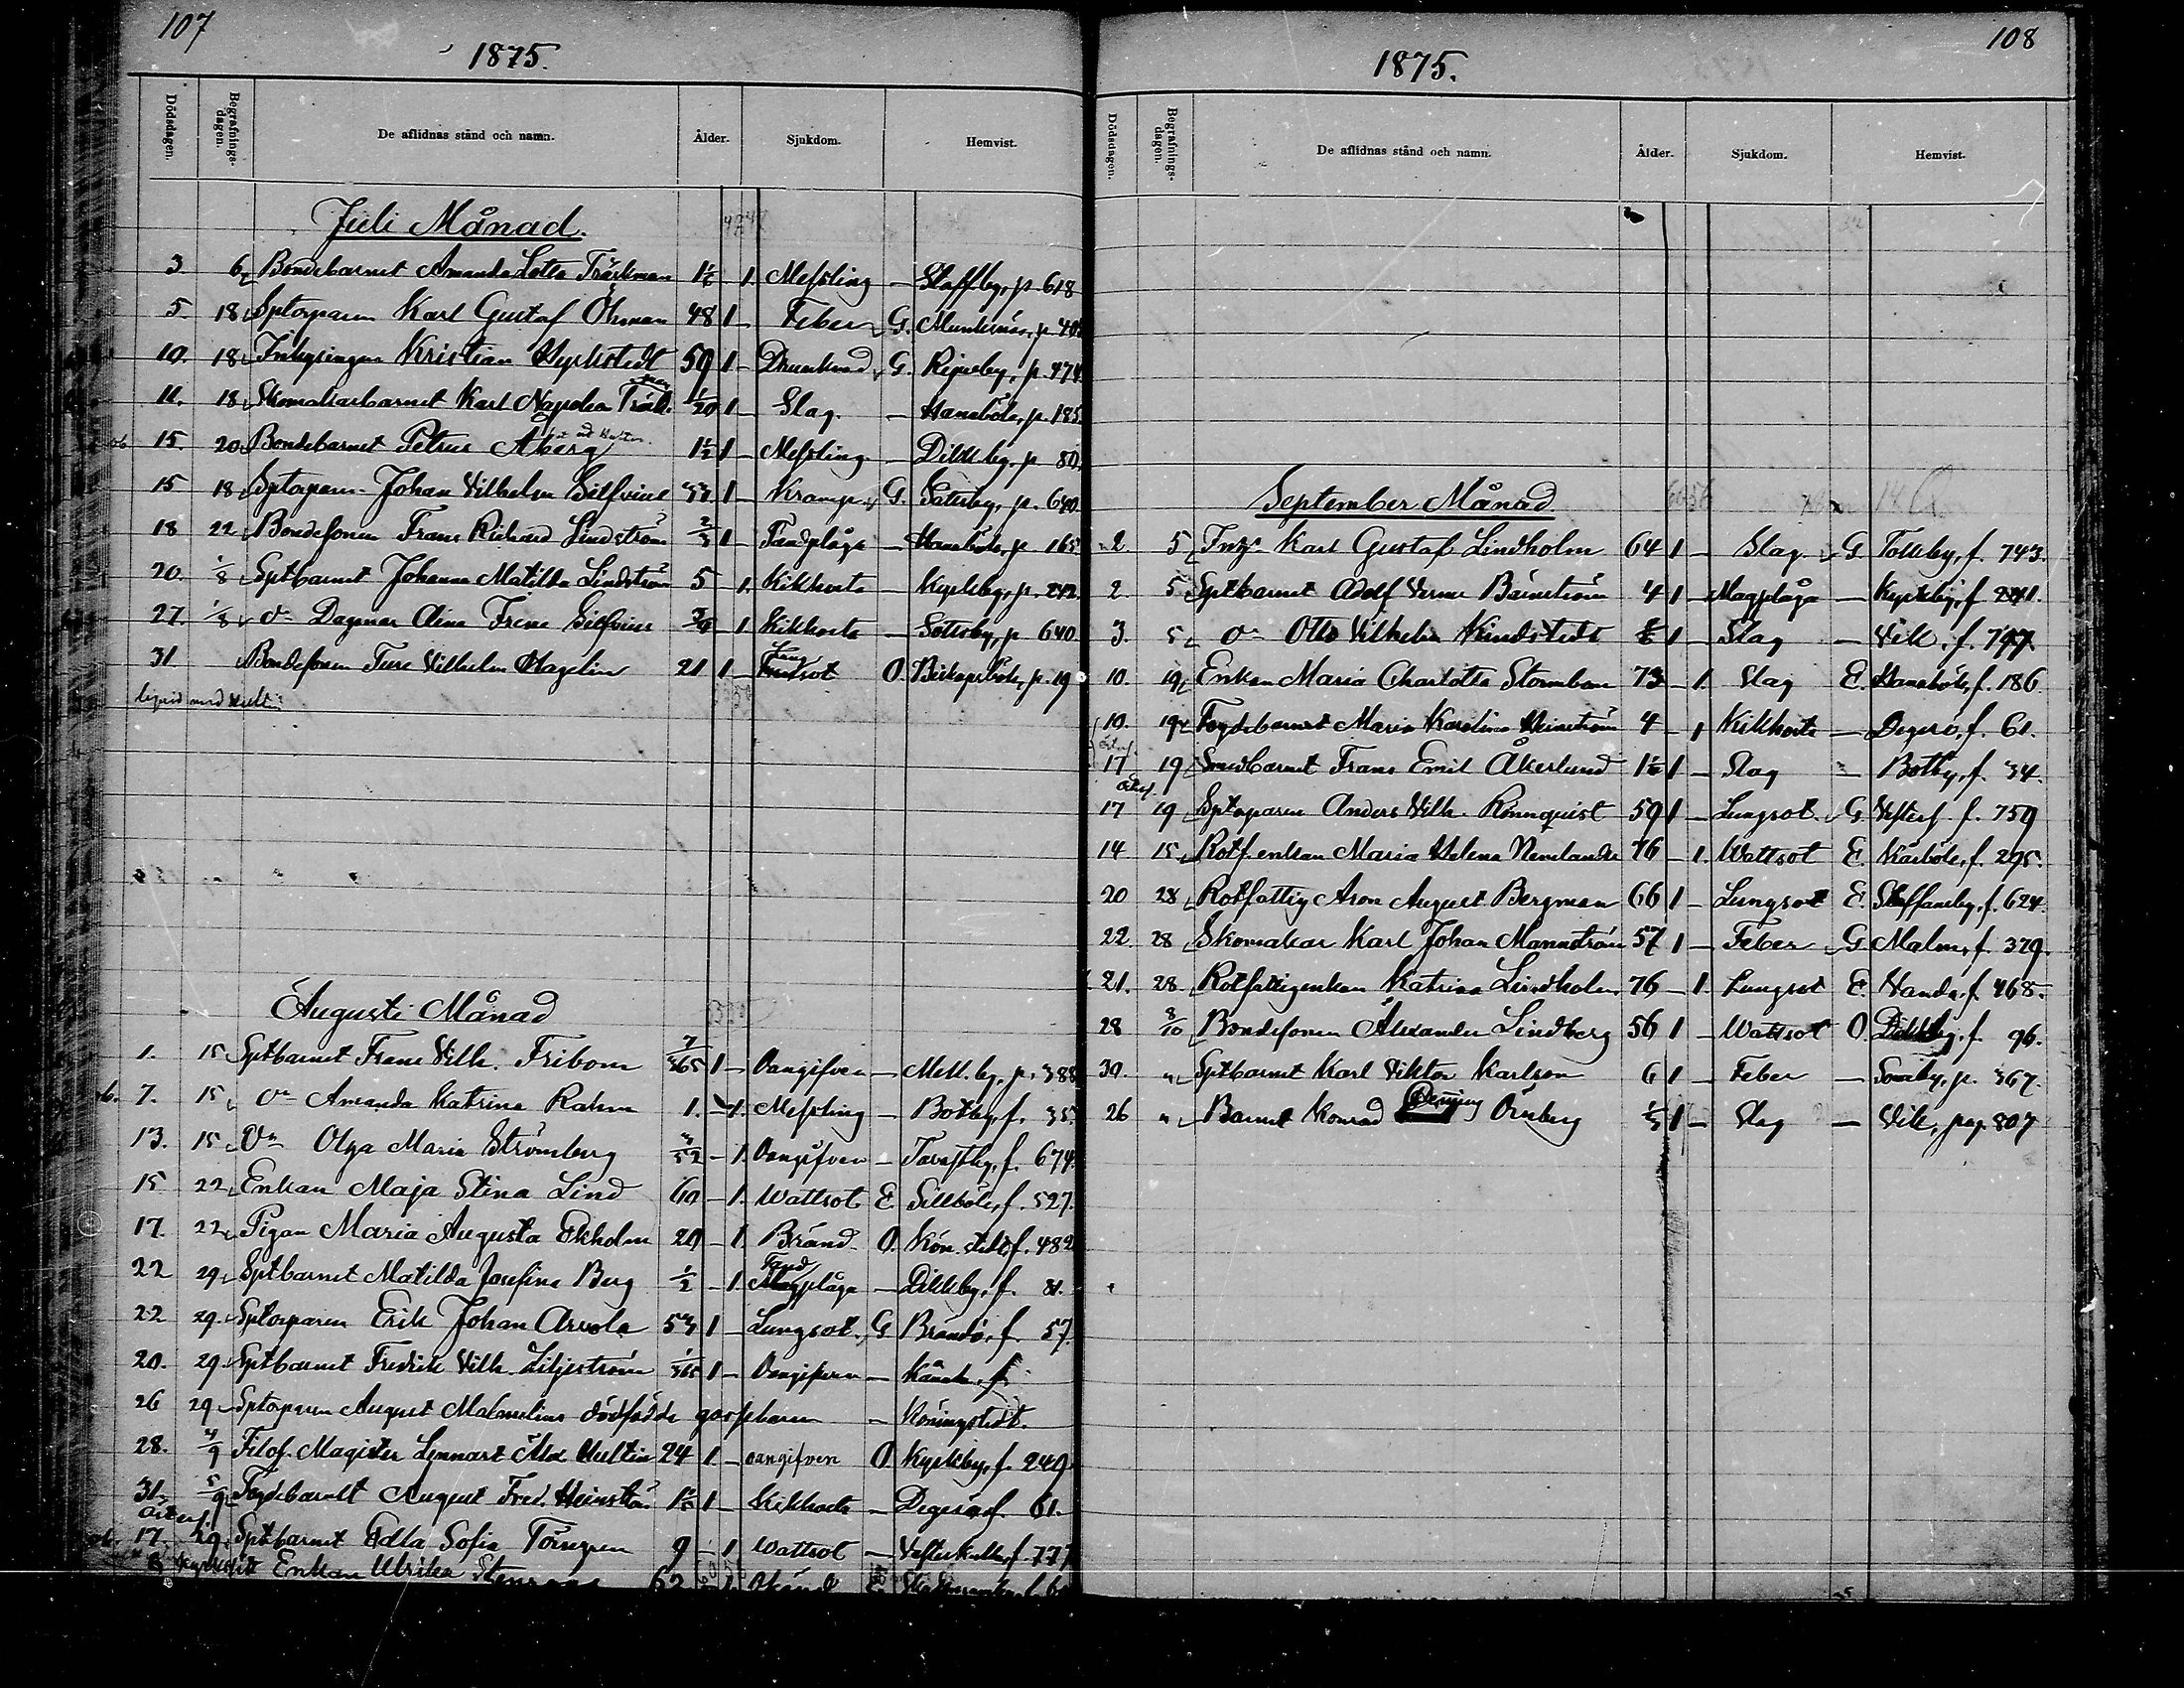 107
1875.
Dödsdagen. Begrafningsdagen. De aflidnas stånd och namn. Ålder. Sjukdom. Hemvist.
Juli Månad.
3. 6 Bondebarnet Amanda Lotta Träskman 1½ - 1. Messling - Staffby, p. 618
5. 18 Sptorparen Karl Gustaf Öhman 48 1 - Feber G. Munksnäs, p.
10. 18 Inhysingen Kristian Nyckstedt 59 1 - Drunknad G. Ripuby, p. 474
11. 18 Skomakarbarnet Karl Napoleon Träskman 1/20 1 - Slag. - Hanaböle, p. 185
15. 20 Bondebarnet Petrus Åberg 1½ 1 - Messling - Dickby, p. 80
15 18 Sptorparen Johan Vilhelm Silfvius 1 - Kramp G. Sottsby, p. 640
18 22 Bondesonen Frans Richard Lindström 2/3 1 - Tandplåga - Hanaböle, p. 165
20. 1/8 Sptbarnet Johanna Matilda Lindström 5 - 1. Kikhosta - Kyrkby, p. 242
27. 1/8 Dn Dagmar Aina Irene Silfvius 3/4 - 1 Kikhosta - Sottsby, p 640
31 Bondesonen Ture Vilhelm Hagelin 21 1 - Lungsot O. Biskopsböle, p. 19
Augusti Månad
1. 15 Sptbarnet Frans Vilh. Fribom 7/365 1 - Oangifven - Mell.by, p. 388
7. 15 Dn Amanda Katrina Rahm 1. - 1. Messling - Botby, f. 35
13. 15 Dn Olga Maria Strömberg 3/52 - 1. Oangifven - Tavastby, f. 674
15 22 Enkan Maja Stina Lind 60 - 1. Wattsot E Sillböle, f. 527.
17. 22 Pigan Maria Augusta Ekholm 20 - 1. Bränd O. Kön.stedt f. 482
22 29 Sptbarnet Matilda Josefina Berg ½ - 1. Tandplåga - Dickby, f. 81.
22 29. Sptorparen Erik Johan Arvola 53 1 - Lungsot. G Brändö, f. 57.
20. 29. Sptbarnet Fredrik Vilh. Liljeström 1/365 1 - Oangifven - Kånala, f.
26 29 Sptorparen August Malmelins dödfödde gossebarn - Köningstedt.
28. 4/9 Filos. Magister Lennart Alex Hultin 24 1. - oangifven O Kyrkby, f. 249
31. 5/9 Fogdebarnet August Fred. Heinström 1½ 1 - Kikhosta - Degerö f. 61.
17. 29. Sptbarnet Edla Sofia Törngren 9 - 1 Wattsot - Vesterkulla, f. 777
Enkan Ulrika 62
108
1875.
Dödsdagen. Begrafningsdagen. De aflidnas stånd och namn. Ålder. Sjukdom. Hemvist.
September Månad
2 5 Inhys Karl Gustaf Lindholm 64 1 - Slag. G. Tolkby, f. 743.
2. 5 Sptbarnet Adolf Verner Bäinström 4 1 - Magplåga - Kyrkby, f 241.
3. 5 Dn Otto Vilhelm Kindstedt 1 - Slag - Vik, f. 797
10. 19 Enkan Maria Charlotta Stormbom 73 - 1. Slag E. Hanaböle, f. 186.
10. 19 Fogdebarnet Maria Karolina Heinström 4 - 1 Kikhosta - Degerö, f. 61.
17 19 Smedbarnet Frans Emil Åkerlund 1½ 1 - Slag - Botby, f. 34.
17 19 Sptorparen Anders Vilh. Rönnquist 59 1 - Lungsot G. f. 759
14 15 Rotf.enkan Maria Helena Nevelander 76 - 1. Wattsot E. Kårböle, f. 295.
20 28 Rotfattig Aron August Bergman 66 1 - Lungsot E. Staffansby, f. 624.
22 28 Skomakar Karl Johan Mannström 57 1 - Feber G. Malm, f. 379.
21. 28. Rotfattigenkan Katrina Lindholm 76 - 1. Lungsot E. Vanda, f. 468.
28 8/10 Bondesonen Alexander Lindberg 56 1 - Wattsot O. Dickby, f. 96.
30. " Sptbarnet Karl Viktor Karlson 6 1 - Feber - Somby, p. 367.
26 " Barnet Konrad Henning Örnberg 1/3 1 - Slag - Vik, pag. 807